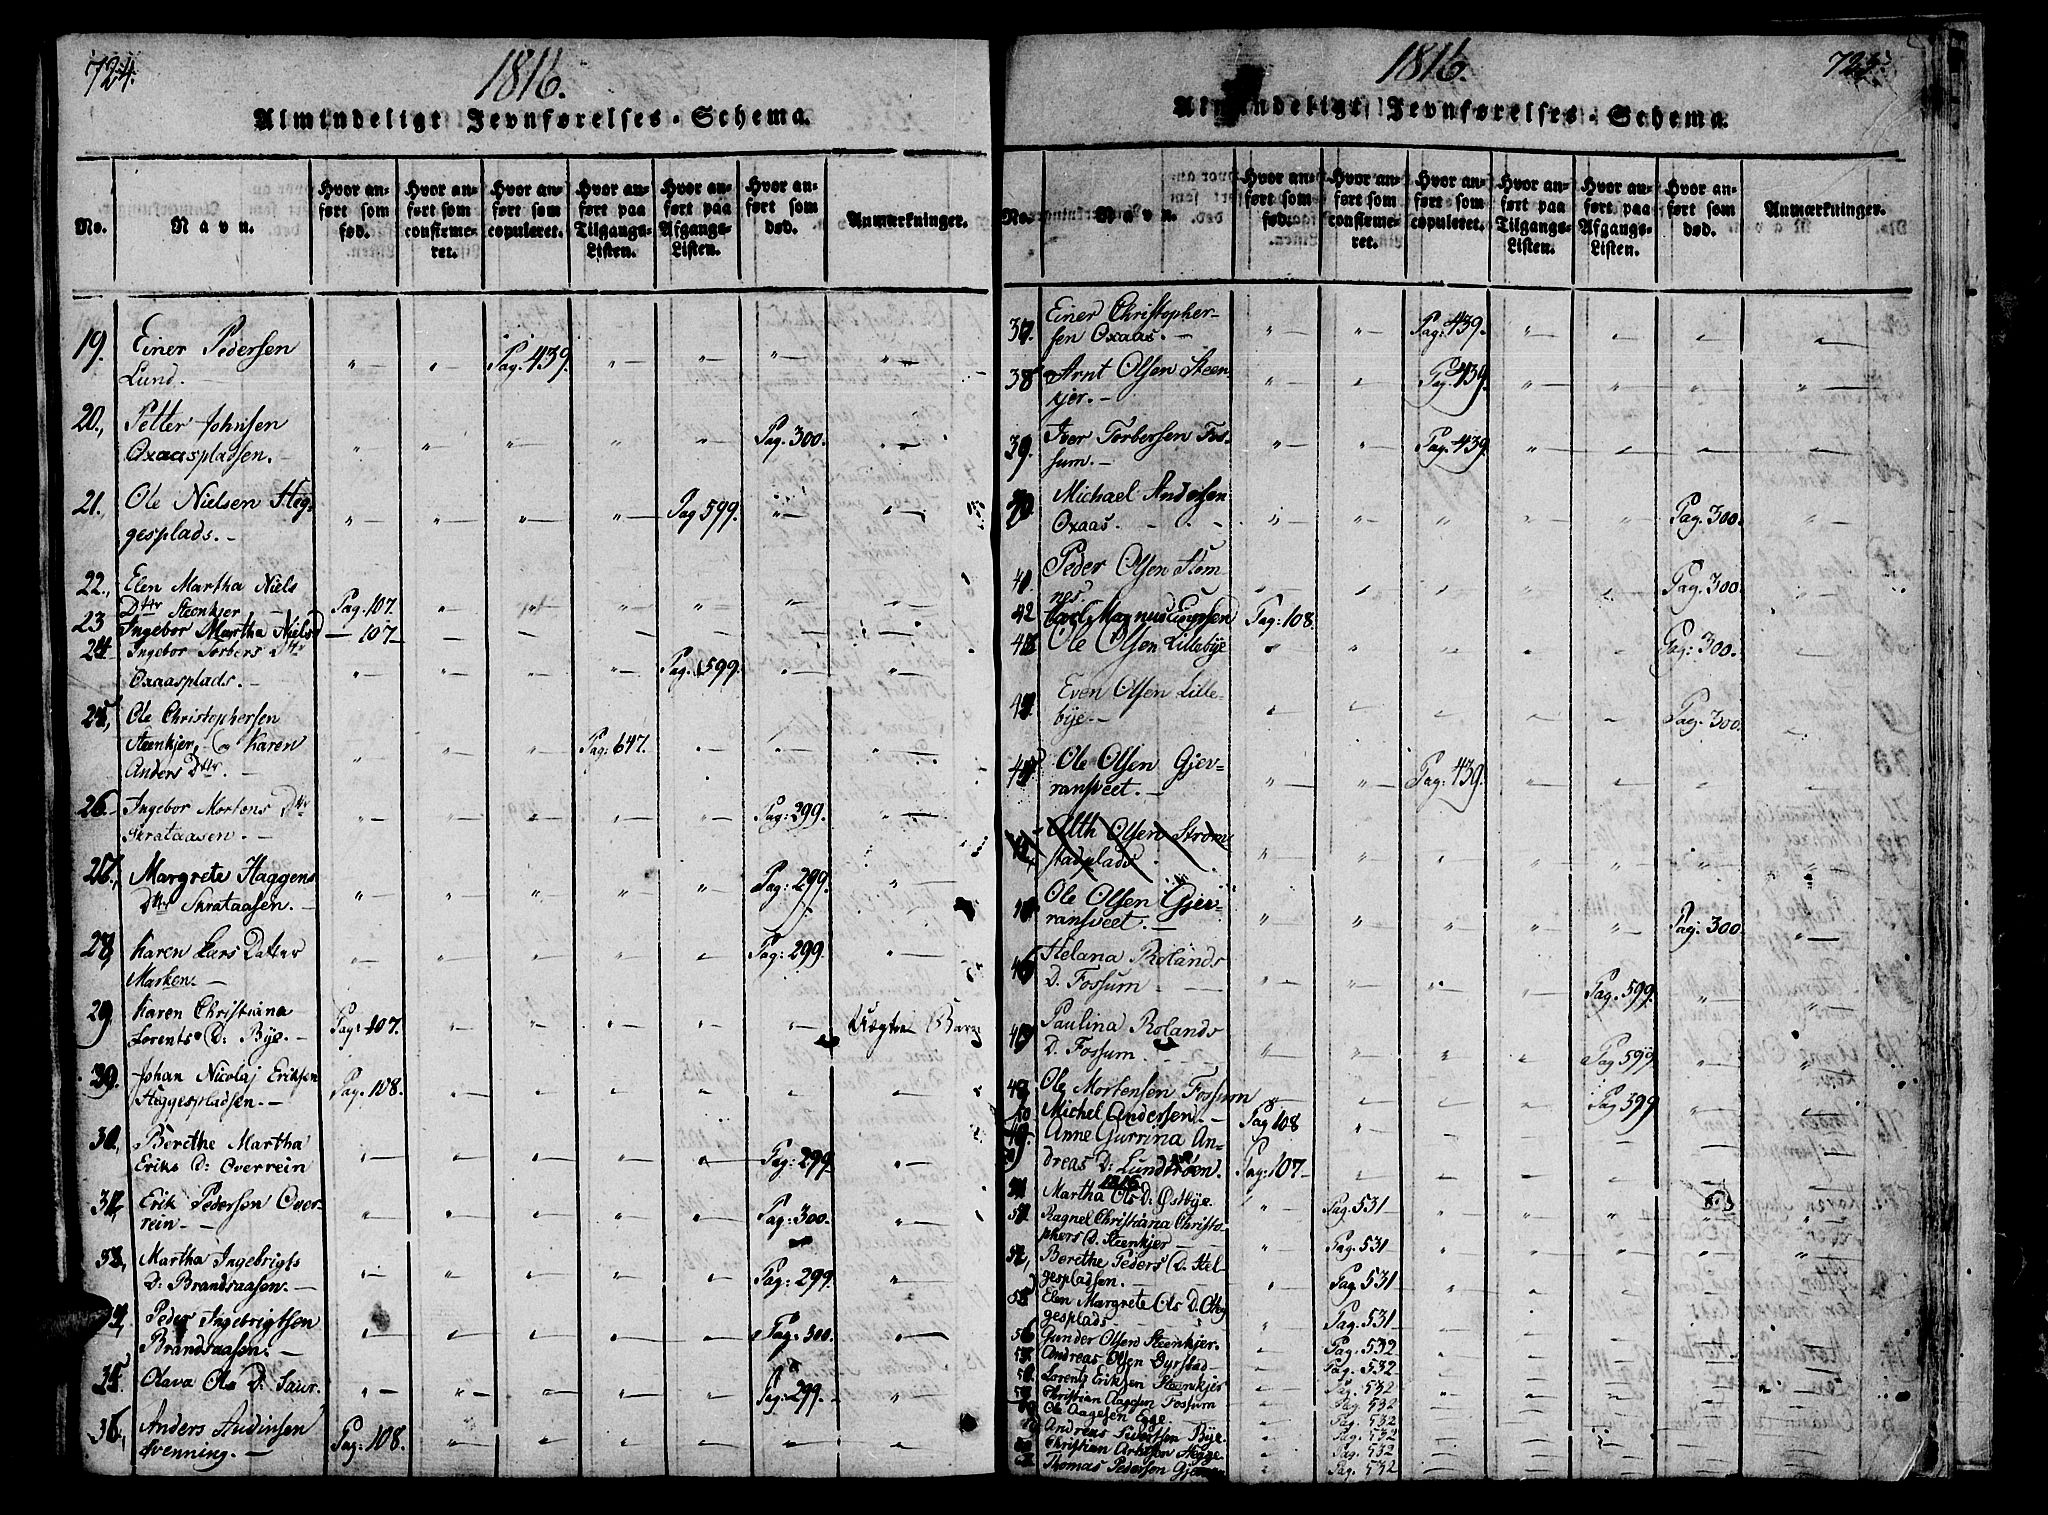 724.
1816.
Almindeligt Jevnførelses-Schema.
No.
Navn.
Hvor an-
ført som
fød.
Hvor an-
ført som
confirme-
ret.
Hvor an-
ført som
copuleret.
Hvor an-
ført paa
Tilgangs-
Listen.
Hvor an-
ført paa
Afgangs-
Listen.
Hvor an-
ført som
død.
Anmærkninger.
19. Einer Pedersen
Lund. Pag. 439.
20. Petter Johnsen
Oxaaspladsen. Pag. 300.
21. Ole Nielsen Heg-
gesplads. Pag 599.
22. Elen Martha Niels
Dttr Steenkjer. Pag. 107.
23 Ingebor Martha Nielsd — 107
24 Ingebor Torbers Dttr
Oxaasplads. Pag. 599.
25, Ole Christophersen
Steenkjer, og Karen
Anders Dttr. Pag: 647.
26. Ingebor Mortens Dttr
Skrataasen. Pag: 299.
Margrete Haggens
Dttr Skrataasen. Pag: 299.
28, Karen Lars Datter
Marken. Pag: 299.
29 Karen Christiana
Lorents D: Bye. Pag: 107.
Johan Nicolaj Eriksen
Heggespladsen. Pag. 108.
Berethe Martha
Eriks D: Overrein Pag: 299
Erik Pederson Over-
rein Pag: 300.
Martha Ingebrigts
D: Brandsaasen. Pag: 299.
Peder Ingebrigtsen
Brandsaasen. Pag: 300.
35. Olava Ols D: Saur. Pag: 299.
36, Anders Audinsen
Qvenning. Pag: 108.
1816.
Almindeligt Jevnførelses-Schema.
No.
Navn.
Hvor an-
ført som
fød.
Hvor an-
ført som
confirme-
ret.
Hvor an-
ført som
copuleret.
Hvor an-
ført paa
Tilgangs-
Listen.
Hvor an-
ført paa
Afgangs-
Listen.
Hvor an-
ført som
død.
Anmærkninger.
37. Einer Christopher-
sen Oxaas. Pag: 439.
38 Arnt Olsen Steen-
kjer. Pag. 439.
39. Iver Torbersen Fos-
sum. Pag. 439
Michael Andersen
Oxaas. Pag. 300.
41. Peder Olsen Stom-
nes. Pag. 300.
42 Carl Magnus Pag: 108.
Ole Olsen Lillebye Pag: 300.
Even Olsen Lille-
bye. Pag. 300.
Ole Olsen Gjev-
ransveet. Pag: 439.
Olsen Strøm-
stadplads
Ole Olsen Gjev-
ransveet. Pag. 300.
46 Helana Rolands
D. Fossum Pag. 599.
Paulina Rolands
D. Fossum Pag 599.
Ole Mortensen Fossum Pag 399
Michel Andersen. Pag 108
Anne Gurrina An-
dreas D: Lundsøen. Pag: 107
1816
Martha Ols D: Østbye. Pag. 531
Ragnel Christiana Christo-
phers D. Steenkjer Pag. 531
Berethe Peders D. Hel-
gespladsen. Pag 531
55 Elen Margrete Ols D. Heg-
gesplads Pag. 531
56 Gunder Olsen Steenkjer. Pag. 532
Andreas Olsen Dyrstad Pag. 532
Lorents Eriksen Steenkjer Pag. 532
Christian Aagesen Fossum Pag. 532
Ole Aagesen Egge Pag. 532
Andreas Sivertsen Bye. Pag. 532
Christian Hegge Pag. 532
Thomas Pedersen Pag. 532